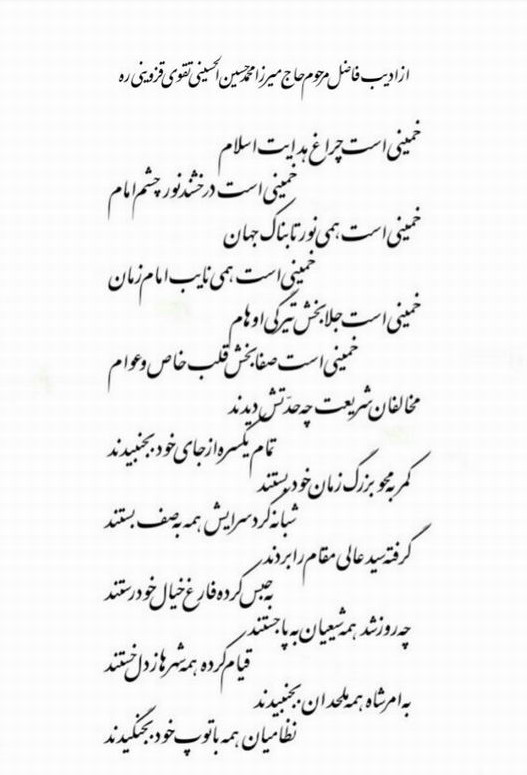 از ادیب فاضل مرحوم حاج میرزا محمدحسین الحسینی تقوی قزوینی ره
خمینی است چراغ هدایت اسلام
خمینی است درخشنده نور چشم امام
خمینی است همی نور تابناک جهان
خمینی است همی نایب امام زمان
خمینی است جلابخش تیرگی اوهام
خمینی است صفابخش قلب خاص و عوام
مخالفان شریعت چه حدّتش دیدند
تمام یکسره از جای خود بجنبیدند
کمر به محو بزرگ زمان خود بستند
شبانه گرد سرایش همه به صف بستند
گرفته سید عالی مقام را بردند
به حبس کرده فارغ خیال خود رستند
چه روز شد همه شیعیان به پا جستند
قیام کرده همه شهرها ز دل خستند
به امر شاه همه ملحدان بجنبیدند
نظامیان همه با توپ خود بجنگیدند